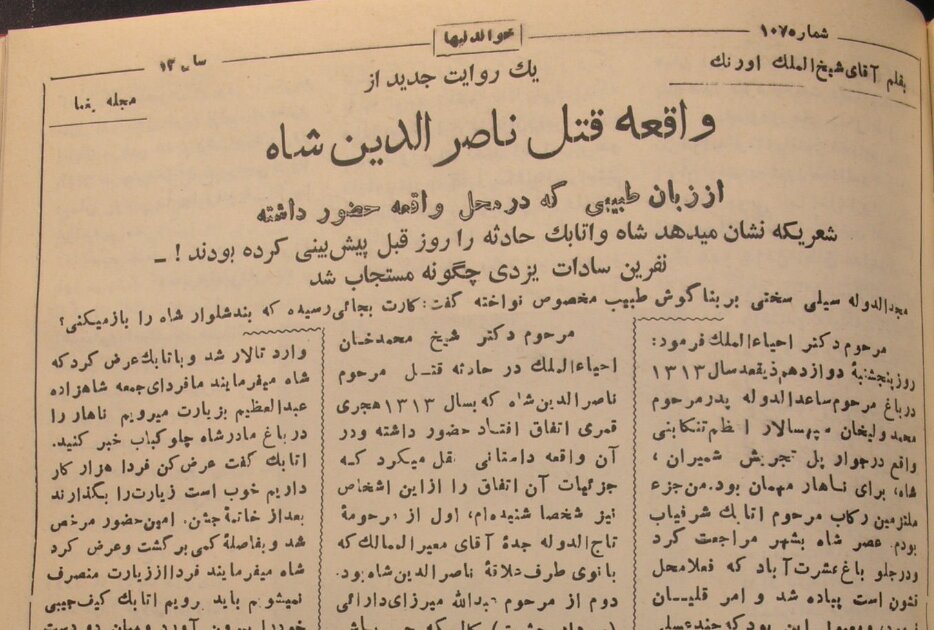 شماره ۱۰۷۵
خواندنیها
سال ۱۳
بقلم آقای شیخ‌الملك اورنك
مجله یغما
يك روایت جدید از
واقعه قتل ناصر الدین شاه
از زبان طبیبی که در محل واقعه حضور داشته
شعریکه نشان میدهد شاه و اتابك حادثه را روز قبل پیش‌بینی کرده بودند ! ـ
نفرین سادات یزدی چگونه مستجاب شد
مجدالدوله سیلی سختی بر بناگوش طبیب مخصوص نواخته گفت: کارت بجائی رسیده که بند شلوار شاه را باز میکنی؟
مرحوم دکتر احیاءالملك فرمود:
روز پنجشنبهٔ دوازدهم ذیقعد سال ۱۳۱۳
در باغ مرحوم ساعدالدوله پدر مرحوم
محمد ولیخان سپهسالار اعظم تنکابنی
واقع در جوار پل تجریش شمیران ،
شاه، برای ناهار مهمان بود. من جزء
ملتزمین رکاب مرحوم اتابك شرفیاب
بودم. عصر شاه بشهر مراجعت کرد
ودر جلو باغ عشرت آباد که فعلا محل
قشون است پیاده شد و امر قلیــان
مرحوم دکتر شیخ محمدخــان
احیاءالملك در حادثه قتــل مرحوم
ناصرالدین شاه که بسال ۱۳۱۳ هجری
قمری اتفاق افتــاد حضور داشته ودر
آن واقعه داستانی نقل میکرد کــه
جزئیات آن اتفاق را از این اشخاص
نیز شخصا شنیده‌ام، اول از مرحومهٔ
تاج‌الدوله جدهٔ آقای معیرالممالك که
بانوی طرف علاقهٔ ناصرالدین شاه بود.
دوم از مرحوم عبدالله میرزای دارائی
وارد تالار شد و باتابك عرض کرد که
شاه میفرمایند ما فردای جمعه شاهزاده
عبدالعظیم بزیارت میرویم ناهار را
در باغ مادر شاه چلوکباب خبر کنید.
اتابك گفت عرض کن فردا هزار کار
داریم خوب است زیارت را بگذارند
بعد از خاتمهٔ جشن. امین‌حضور مرخص
شد و بفاصلهٔ کمی برگشت و عرض کرد
شاه میفرمایند فردا از زیارت منصرف
نمیشویم باید برویم اتابك کیف جیبی
خود را بیرون آورد و میان دو دست